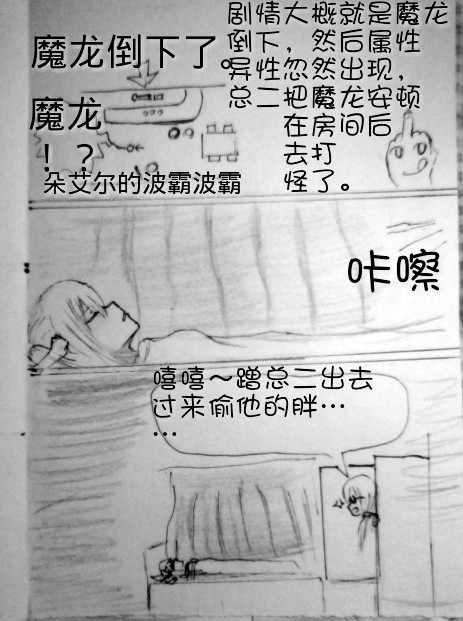 剧情大概就是魔龙
倒下，然后属性
异性忽然出现，
总二把魔龙安顿
在房间后
去打
怪了。
魔龙倒下了。
魔龙
！？
朵艾尔的波霸波霸
咔嚓
嘻嘻～蹭总二出去
过来偷他的胖…
…